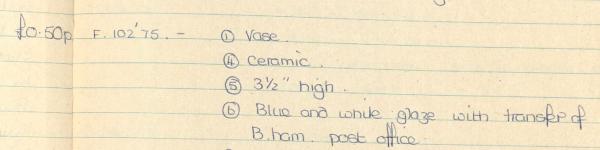 £0.50p F. 102'75. - ① Vase.
④ Ceramic.
⑤ 3½" high.
⑥ Blue and white glaze with transfer of
B.ham. post office.